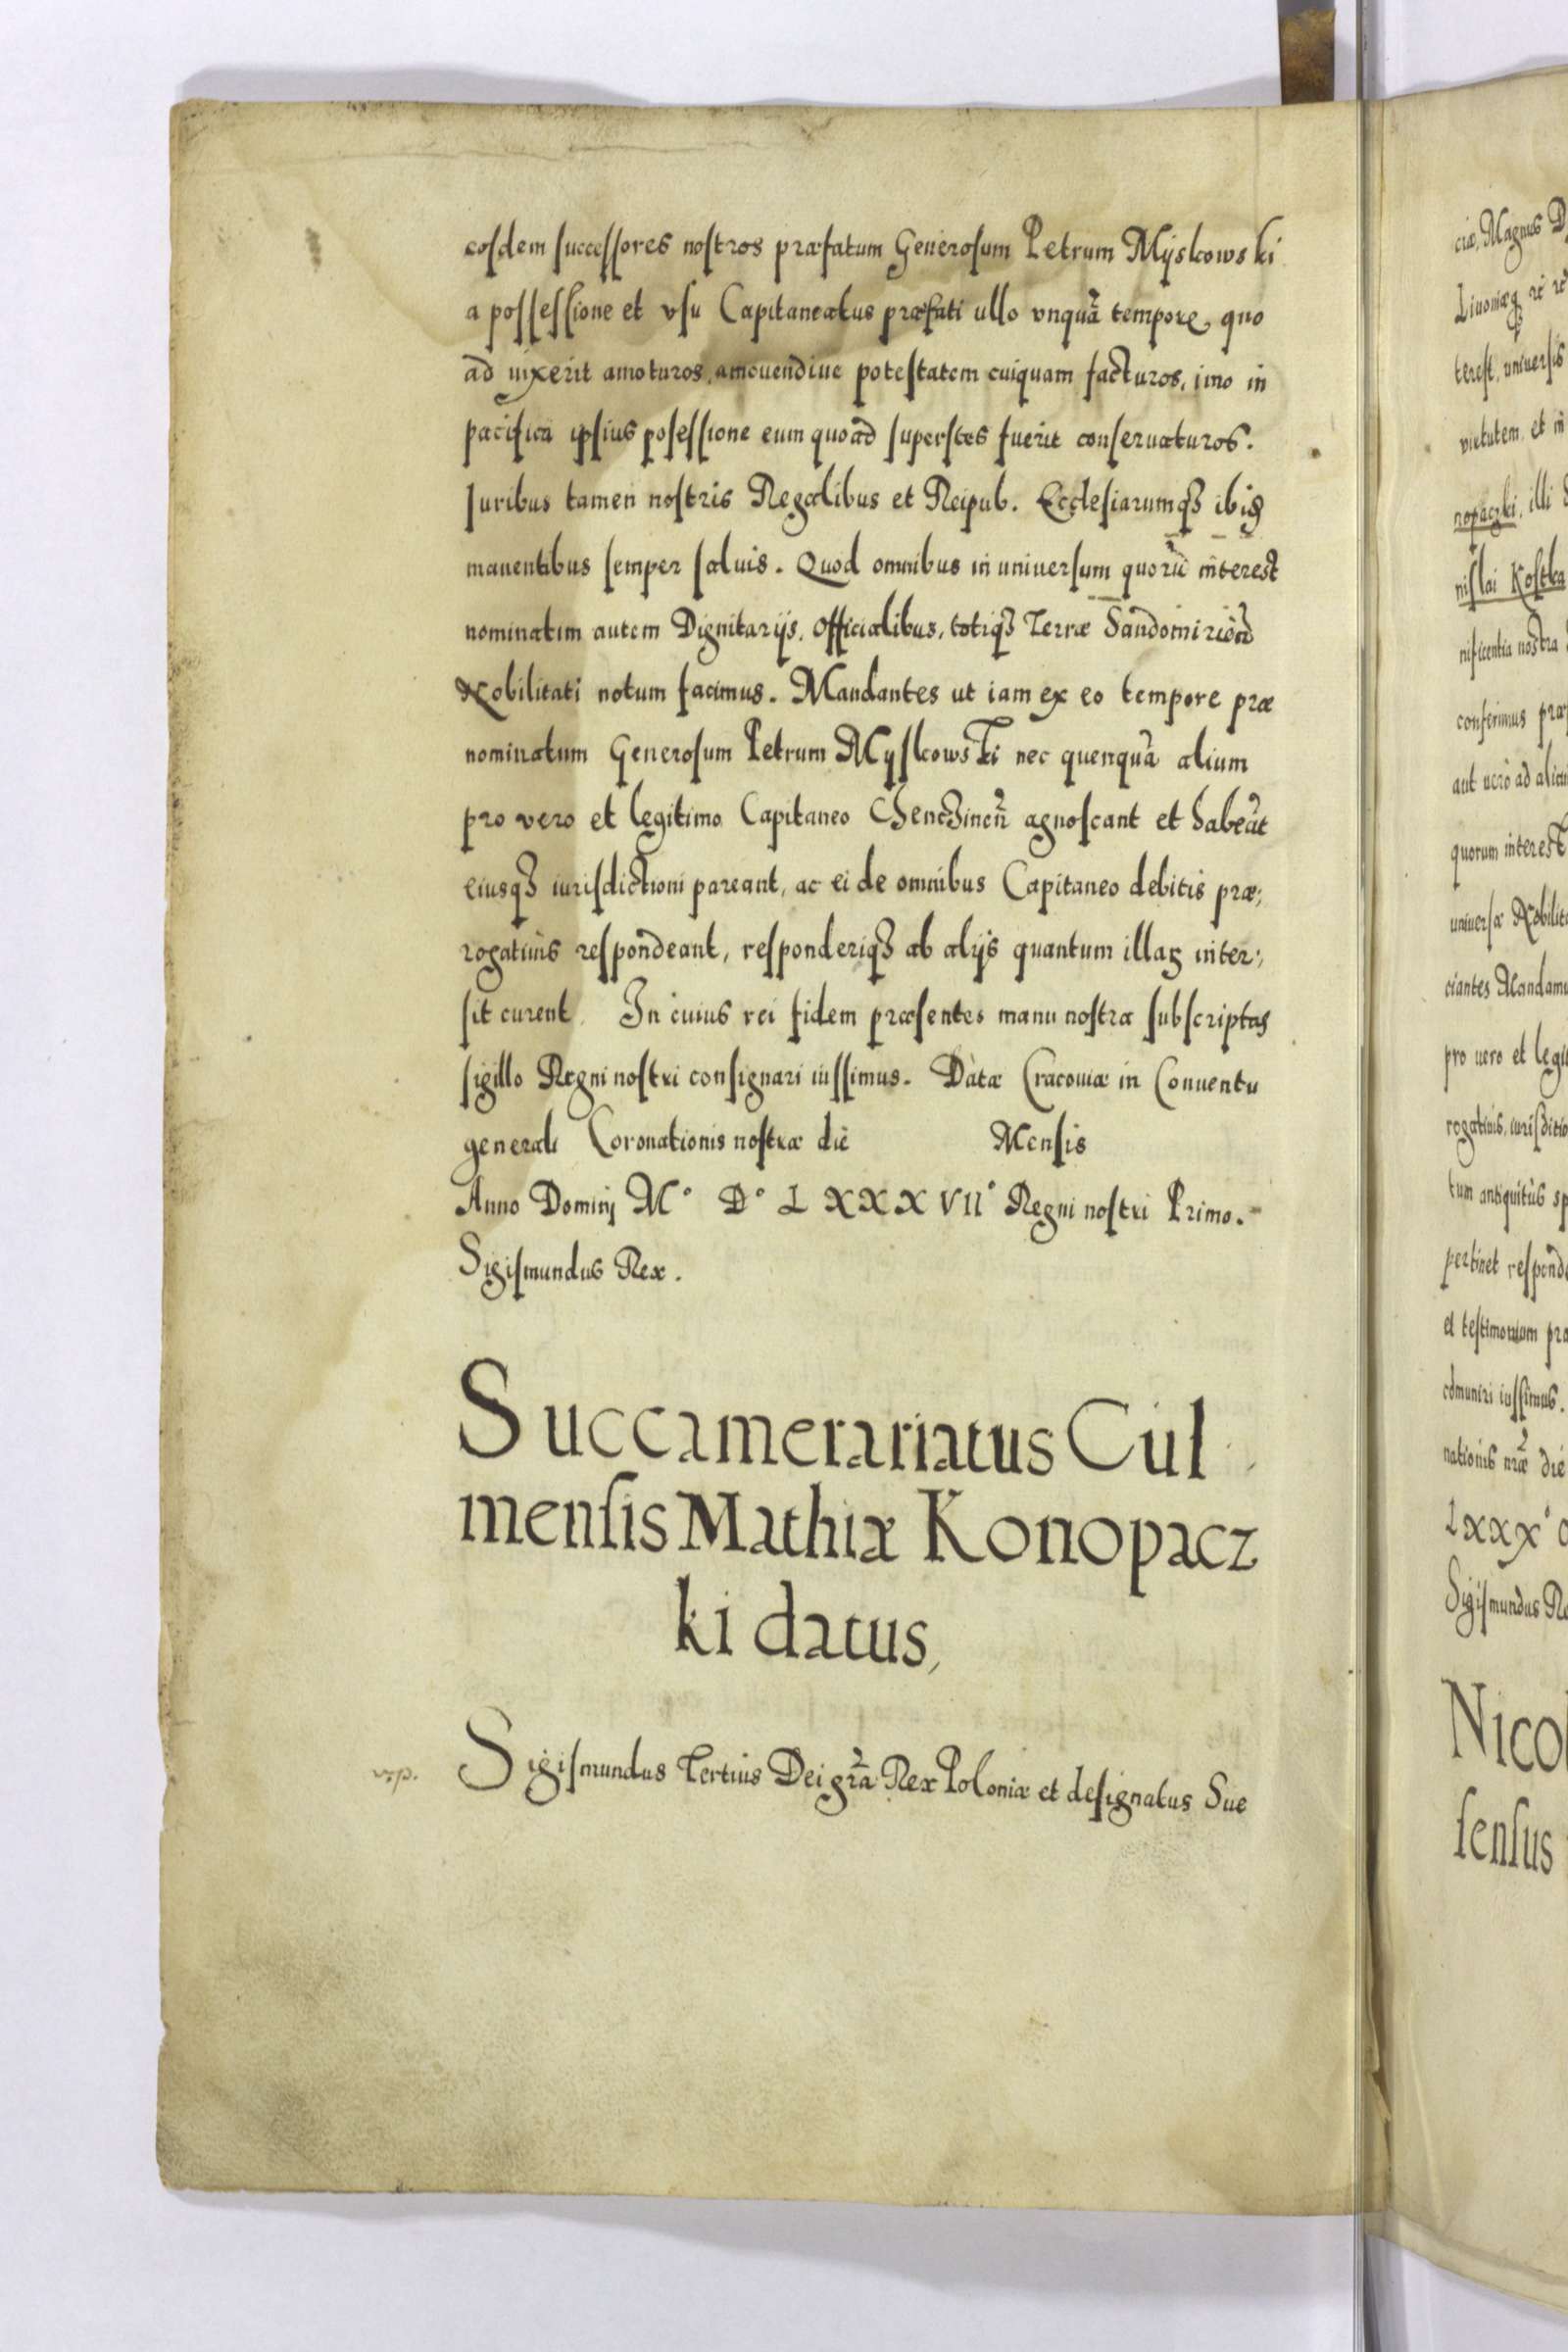 eosdem successores nostros præfatum Generosum Petrum Myskowski
a possessione et vsu Capitaneatus præfati ullo vnquã tempore, quo
ad uixerit amoturos, amouendiue potestatem cuiquam facturos, imo in
pacifica ipsius posessione eum quoad superstes fuerit conseruaturos.
Iuribus tamen nostris Regalibus et Reipub. Ecclesiarumqꝫ ibiꝫ
manentibus semper saluis. Quod omnibus in uniuersum quorũ interest
nominatim autem Dignitarijs, Officialibus, totiqꝫ Terræ
Nobilitati notum facimus. Mandantes ut iam ex eo tempore præ
nominatum Generosum Petrum Myskowski nec quenquã alium
pro vero et legitimo Capitaneo agnoscant et habeãt
eiusqꝫ iurisdictioni pareant, ac ei de omnibus Capitaneo debitis præ:
rogatiuis respondeant, responderiqꝫ ab alijs quantum illaꝝ inter:
sit curent. In cuius rei fidem præsentes manu nostra subscriptas
sigillo Regni nostri consignari iussimus. Datæ Cracouiæ in Conuentu
generali Coronationis nostræ die Mensis
Anno Dominj M° D° L XXX VII° Regni nostri Primo.
Sigismundus Rex.
Succamerariatus Cul
mensis Mathiæ Konopacz
ki datus,
Sigismundus Tertius Dei grã Rex Poloniæ et designatus Sue
ciæ, Magnus D
Liuoniæqꝫ
terest, uniuersis
virtutem, et in
nopaczki, illi
nislai Kostka
nificentia nostra
conferimus præ
aut uerò ad
quorum interest
uniuersæ Nobilit
ciantes Mandamu
pro uero et legit
rogatiuis, iurisditio
tum antiquitùs sp
pertinet responde
et testimonium præ
cõmuniri iussimus.
nationis nræ die
LXXX°
Sigismundus Re
Nicol
sensus